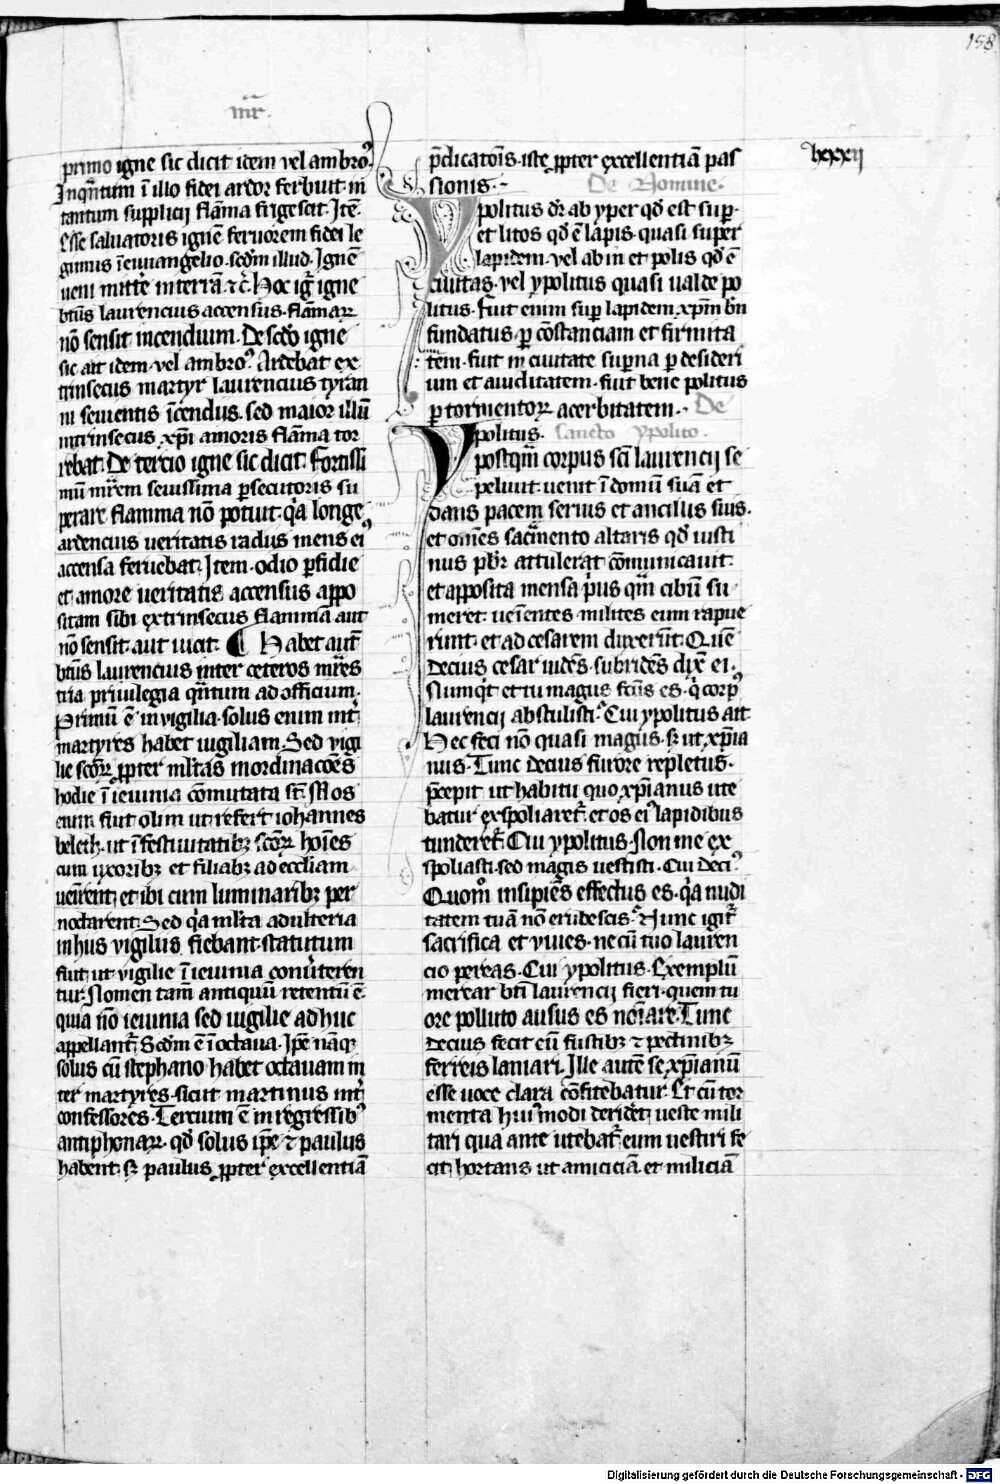 158
mr̃.
primo igne sic dicit idem vel ambro᷒.
Inqn̄tum ī illo fidei ardor ferbuit in
tantum supplicij flam̄a frigescit. Itē.
Esse saluatoris ignē feruorem fidei le
gimus ī euuangelio. scdm̄ illud. Ignē
veni mitte᷑ in terrā ⁊c̄. Hoc igr̄ igne
btūs laurencius accensus. flam̄aꝝ
nō sensit incendium. De scdo igne
sic ait idem. vel ambro᷒. Ardebat ex
trinsecus martyr laurencius tyran
ni seuientis īcendijs. sed maior illū
intrinsecus xp̄i amoris flam̄a tor
rebat. De tercio igne sic dicit. Fortissi
mū mr̄em seuissima ꝑsecutoris su
perare flamma nō potuit. qͥa longe
ardencius veritatis radijs mens ei᷒
accensa feruebat. Item. odio ꝑfidie
et amore veritatis accensus appo
sitam sibi extrinsecus flammā aut
nō sensit. aut vicit. ¶ Habet aūt
btūs laurencius inter ceteros mr̄es
tria priuilegia qn̄tum ad officium.
Primū ē in vigilia. solus enim int᷑
martyres habet vigiliam. Sed vigi
lie scōꝝ ꝓpter ml̄tas inordinacōes
hodie ī ieiunia cōmutata st̄. Mos
enim fuit olim ut refert iohannes
beleth. ut ī festiuitatibꝫ scōꝝ hoīes
cum uxoribꝫ et filiabꝫ ad ecc̄liam
venirent. et ibi cum luminaribꝫ per
noctarent. Sed qͥa ml̄ta adulteria
in hijs vigilijs fiebant. statutum
fuit. ut vigilie ī ieiunia conūteren
tur. Nomen tam̄ antiquū retentū ē.
quia nō ieiunia sed vigilie adhuc
appellant᷑. Scdm̄ ē ī octaua. Ipse nāqꝫ
solus cū stephano habet octauam in
ter martyres. sicut martinus int᷑
confessores. Tercium ē in regressib᷒
antiphonaꝝ. qd̄ solus ip̄e ⁊ paulus
habent. sꝫ paulus ꝓpter excellentiā
p̄dicatōis. iste ꝓpter excellentiā pas
sionis. De Nomine.
Ypolitus dr̄ ab yper qd̄ est suꝑ.
et litos qd̄ ē lapis. quasi super
lapidem. vel ab in et polis qd̄ ē
ciuitas. vel ypolitus quasi valde po
litus. Fuit enim suꝑ lapidem. xp̄m bn̄
fundatus. ꝑ cōstanciam et firmita
tem. fuit in ciuitate suꝑna ꝑ desideri
um et auiditatem. fuit bene politus
ꝑ tormentoꝝ acerbitatem. De
Ypolitus. sancto ypolito.
postqͣm corpus scī laurencij se
peliuit. venit ī domū suā et
dans pacem seruis et ancillis suis.
et omēs sacͣmento altaris qd̄ iusti
nus pbr̄ attulerat cōmunicauit.
et apposita mensa pͥus qͣm cibū su
meret. veīentes milites eum rapue
runt. et ad cesarem duxerūt. Quē
Decius cesar vidēs. subridēs dix̄ ei.
Nunqͥt et tu magus fctūs es. qͥ corp᷒
laurencij abstulisti. Cui ypolitus ait
Hec feci nō quasi magus. sꝫ ut xp̄ia
nus. Tunc decius furore repletus.
p̄cepit ut habitu quo xp̄ianus ute
batur exspoliaret᷑. et os ei᷒ lapidibus
tunderet᷑. Cui ypolitus. Non me ex
spoliasti. sed magis vestisti. Cui deci᷒.
Quomͦ insipiēs effectus es. qͥa nudi
tatem tuā nō erubescis. Nunc igit᷑
sacrifica et viues. ne cū tuo lauren
cio pereas. Cui ypolitus. Exemplū
merear btī laurencij fieri. quem tu
ore polluto ausus es noīare. Tunc
decius fecit eū fustibꝫ ⁊ pectinibꝫ
ferreis laniari. Ille autē se xp̄ianū
esse voce clara cōfitebatur. Et cū tor
menta hui᷒modi deridet. veste mili
tari qua ante utebat᷑. eum vestiri fe
cit. hortans ut amiciciā et miliciā
lxxxij
Digitalisierung gefördert durch die Deutsche Forschungsgemeinschaft - DFG